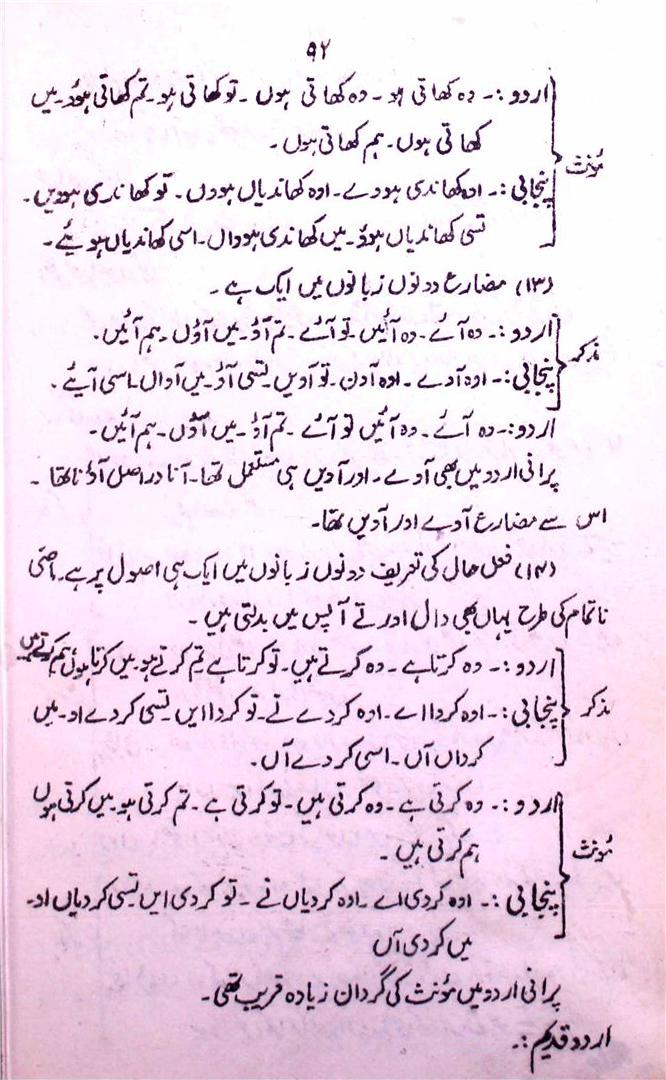 ۹۲
اردو :۔ وہ کھاتی ہو ۔ وہ کھاتی ہوں ۔ تو کھاتی ہو ۔ تم کھاتی ہوؤ ۔ میں
کھاتی ہوں ۔ ہم کھاتی ہوں ۔
مؤنث
پنجابی :۔ اوہ کھاندی ہووے ۔ اوہ کھاندیاں ہوون ۔ تو کھاندی ہوویں ۔
تسی کھاندیاں ہوؤ ۔ میں کھاندی ہوواں ۔ اسی کھاندیاں ہویئے ۔
(۱۳) مضارع دونوں زبانوں میں ایک ہے ۔
مذکر
اردو :۔ وہ آئے ۔ وہ آئیں تو آئے ۔ تم آؤ ۔ میں آؤں ۔ ہم آئیں ۔
پنجابی :۔ اوہ آوے ۔ اوہ آون ۔ تو آویں ۔ تسی آؤ ۔ میں آواں ۔ اسی آیئے ۔
اردو :۔ وہ آئے ۔ وہ آئیں تو آئے ۔ تم آؤ ۔ میں آؤں ۔ ہم آئیں ۔
پرانی اردو میں بھی آوے ۔ اور آویں ہی مستعمل تھا ۔ آنا دراصل آؤنا تھا ۔
اس سے مضارع آوے اور آویں تھا ۔
(۱۴) فعل حال کی تعریف دونوں زبانوں میں ایک ہی اصول پر ہے ۔ ماضی
ناتمام کی طرح یہاں بھی دال اور تے آپس میں بدلتی ہیں ۔
اردو :۔ وہ کرتا ہے ۔ وہ کرتے ہیں ۔ تو کرتا ہے تم کرتے ہو ۔ میں کرتا ہوں ہم کرتے ہیں
مذکر
پنجابی :۔ اوہ کردا اے ۔ اوہ کردے نے ۔ تو کردا ایں ۔ تسی کردے او ۔ میں
کرداں آں ۔ اسی کردے آں ۔
اردو :۔ وہ کرتی ہے ۔ وہ کرتی ہیں ۔ تو کرتی ہے ۔ تم کرتی ہو ۔ میں کرتی ہوں
ہم کرتی ہیں ۔
مؤنث
پنجابی :۔ اوہ کردی اے ۔ اوہ کردیاں نے ۔ تو کردی ایں تسی کردیاں او ۔
میں کردی آں
پرانی اردو میں مؤنث کی گردان زیادہ قریب تھی ۔
اردو قدیم :۔